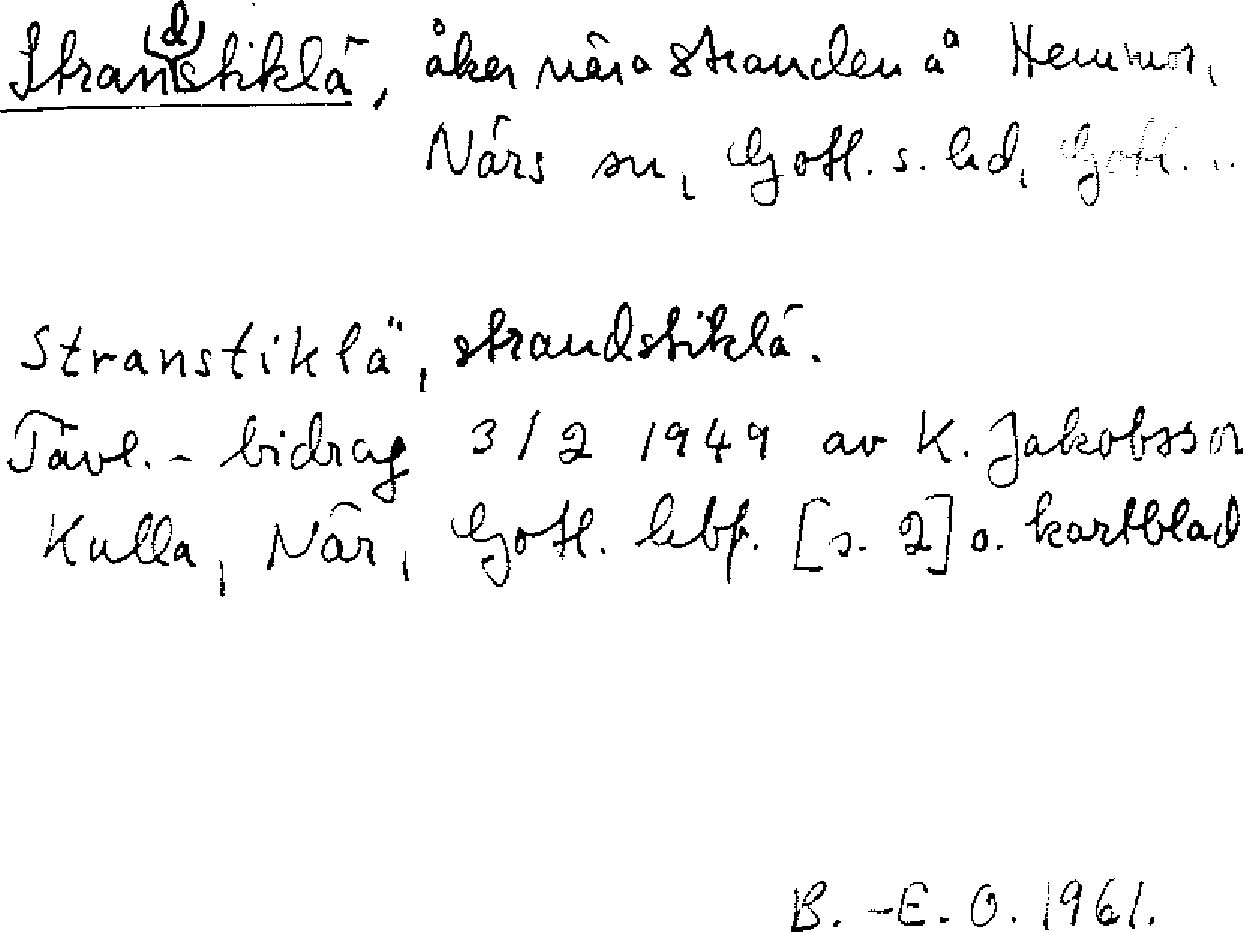 Stran(d)stiklä, åker nära stranden å Hemmor,
Närs sn, Gotl. s. hd, Gotl. ..
Stranstiklä, strandstiklä.
Tävl.-bidrag 3/2 1949 av K. Jakobsson
Kulla, När, Gotl. [s. 2] o. kartblad
B.-E. O. 1961.